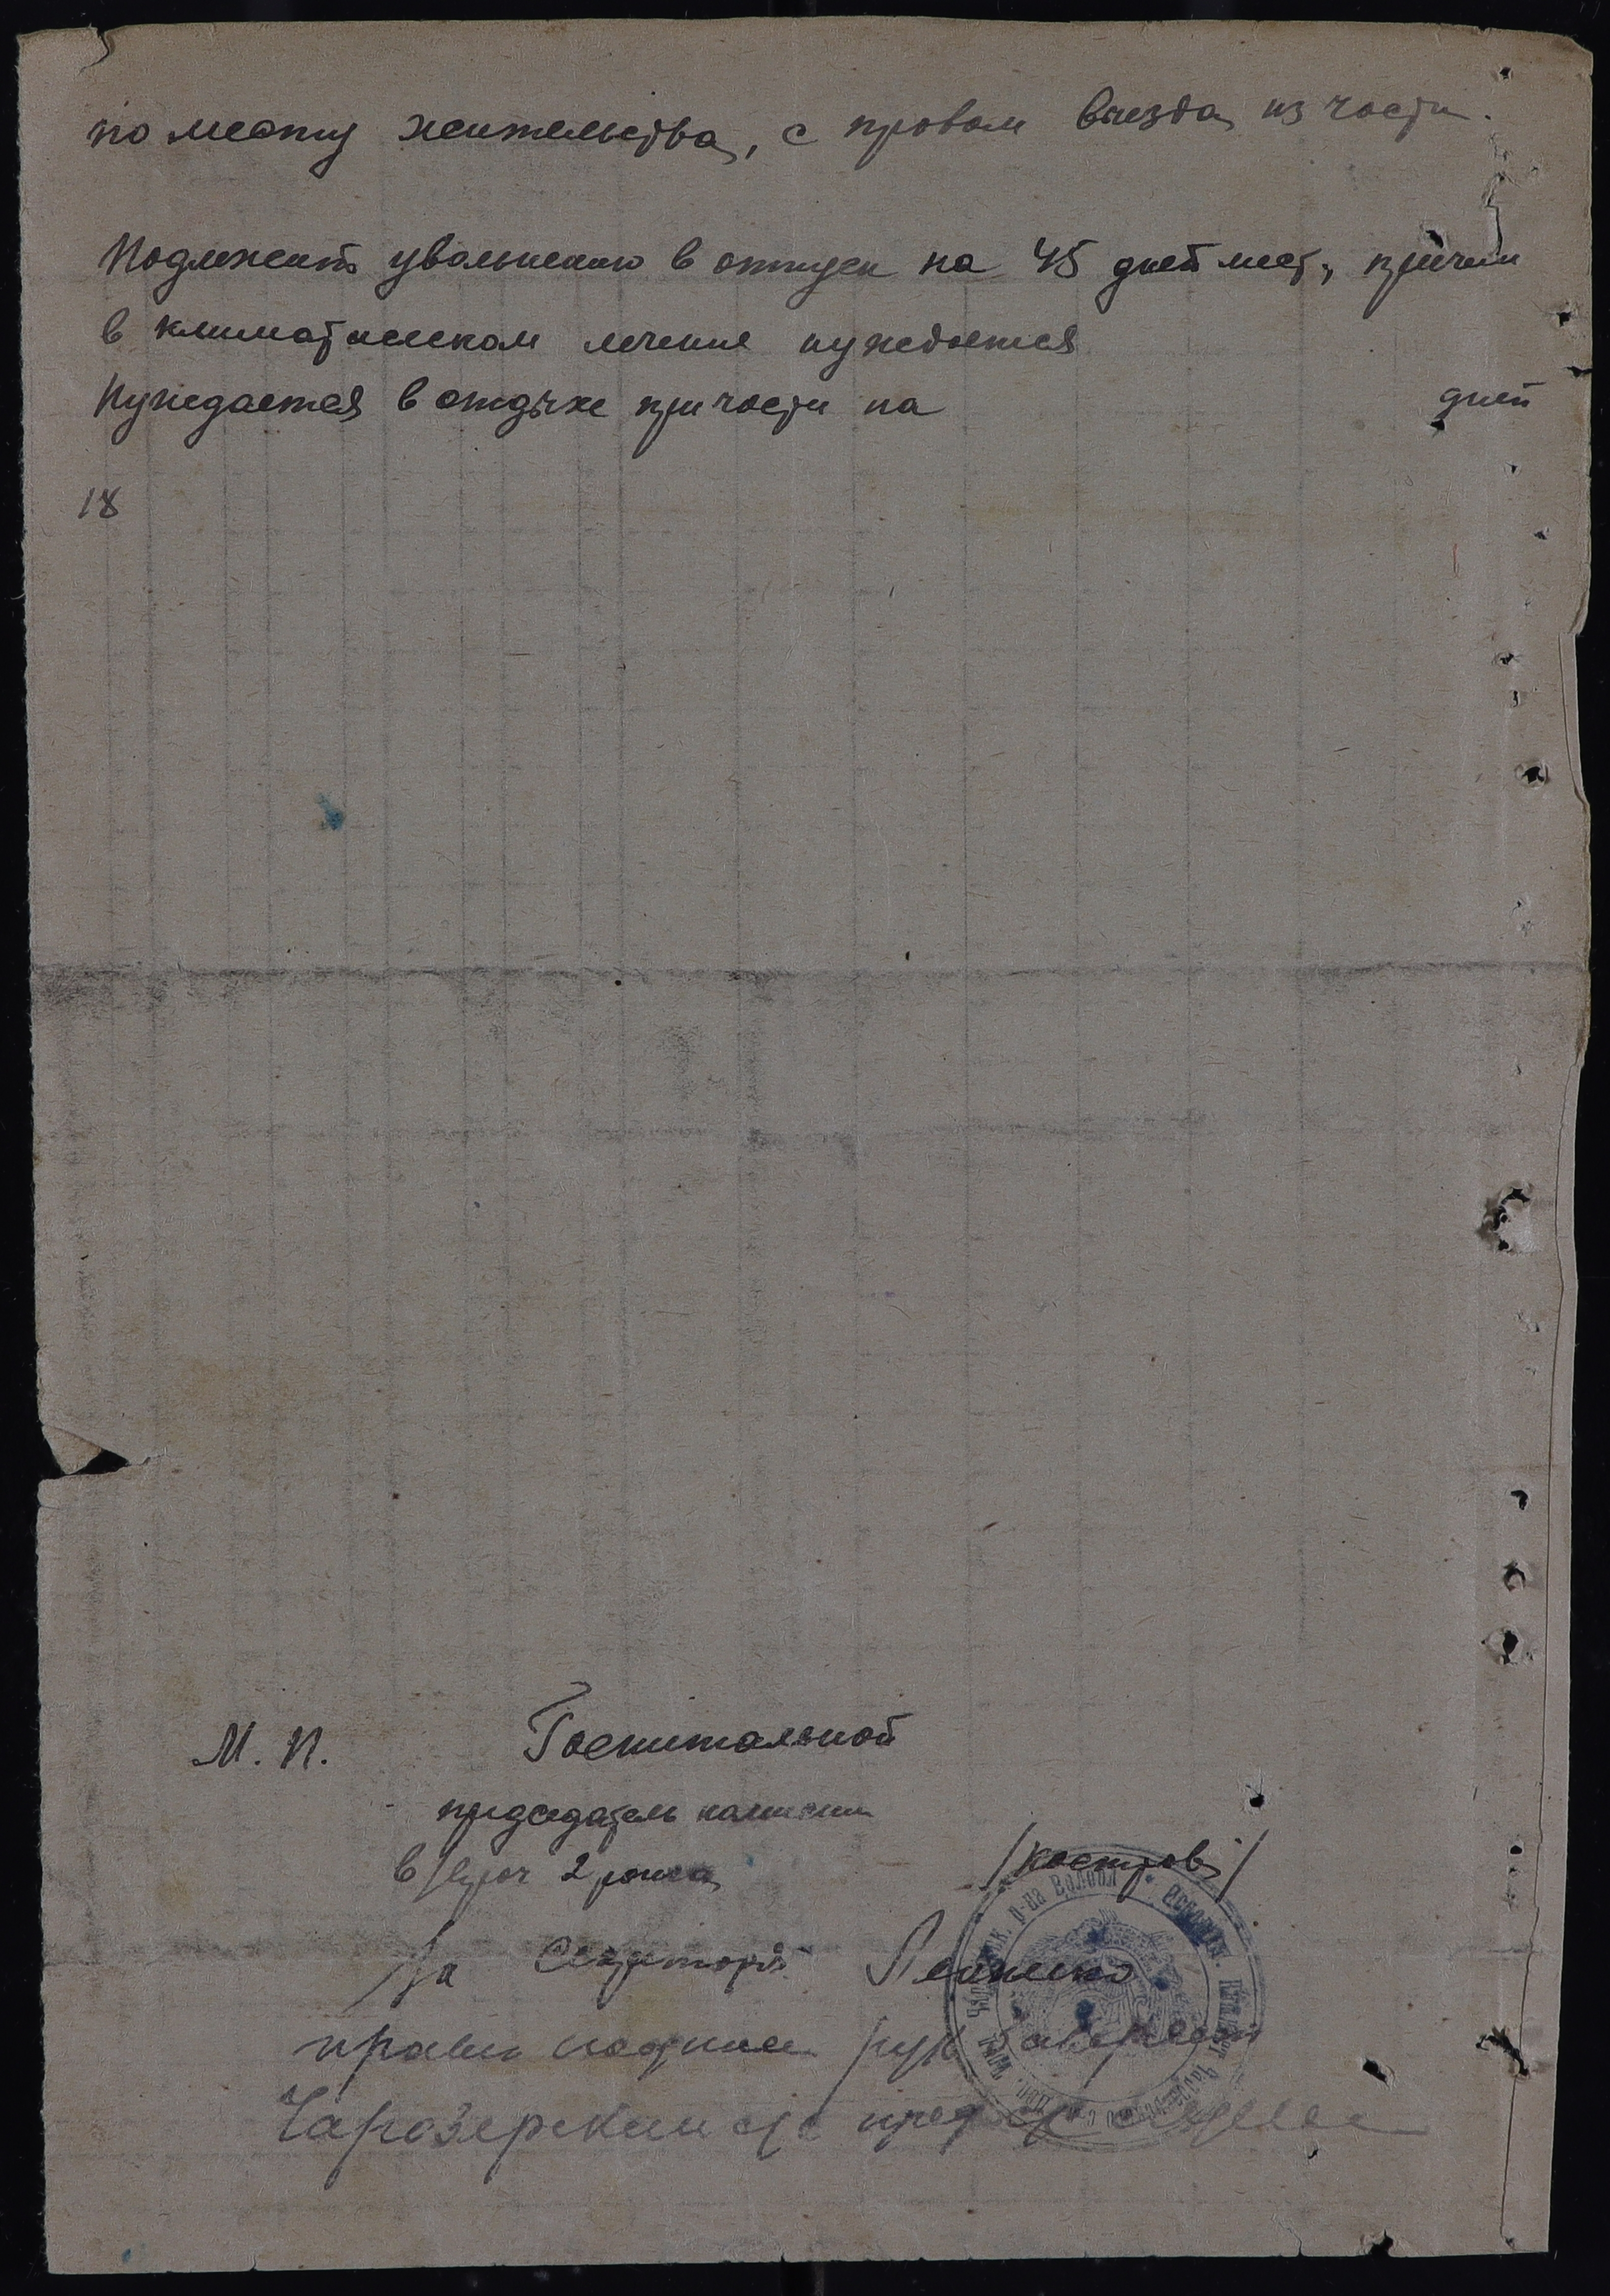 по месту жительства, с правом выезда из части.
Подлежит увольнению в отпуск на 45 дней мест, причем
в климатическом лечение нуждается
Нуждается в отдыхе при части на дней
18
М. П. Госпитальной
председатель комиссии
в/врач 2 ранга /костров/
За Секретаря
Чарозерский с/с пред с/с